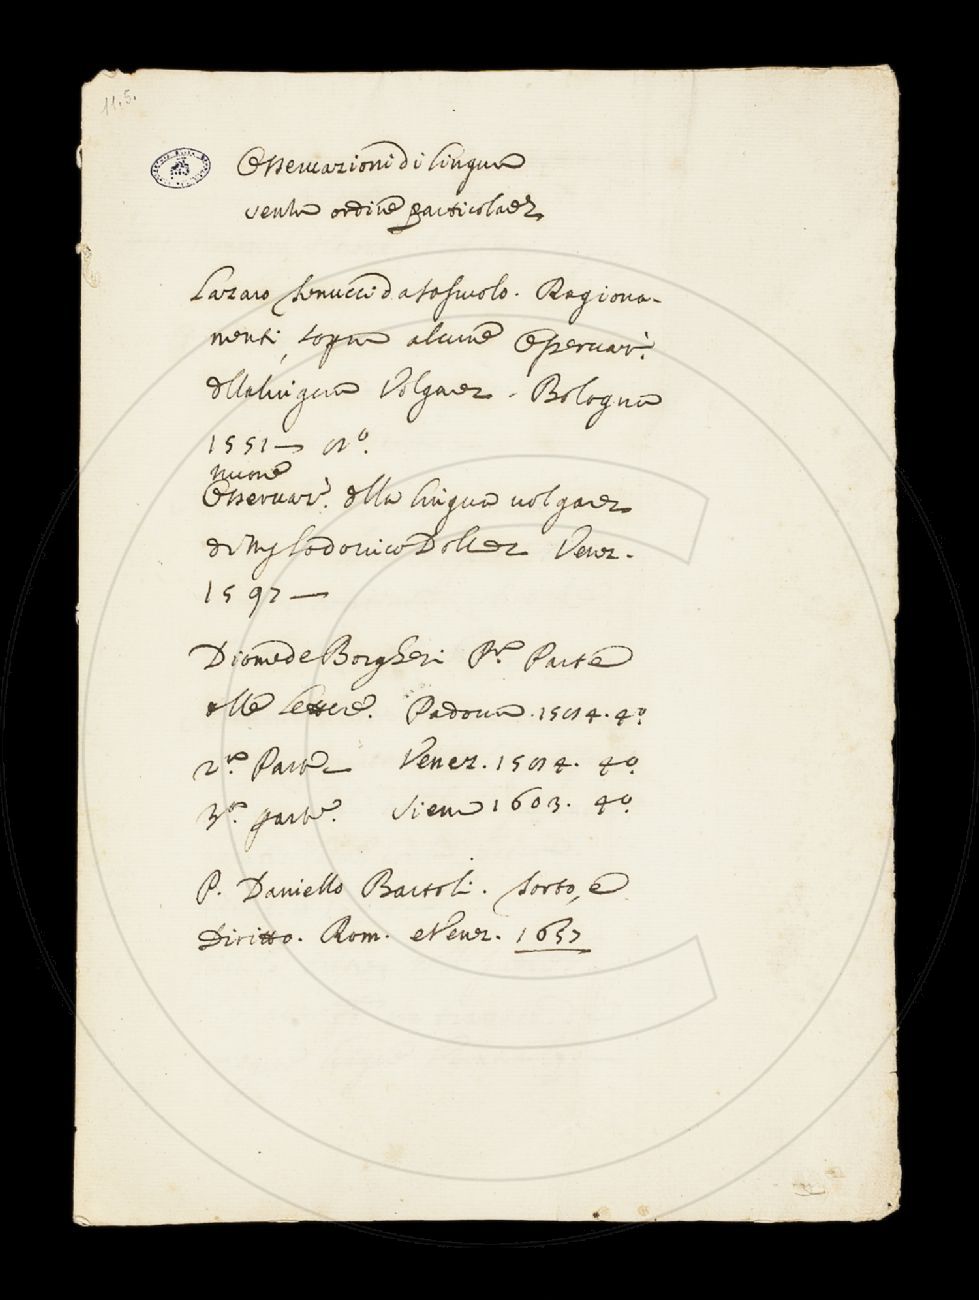 11.5.
Osseruazioni di lingua
senza ordine particolare
Lazaro fenucci da Sassuolo. Ragiona-
menti sopra alcune Osseruaz.
della lingua Volgare. Bologna
1551 — 8º.
nuoue
Osseruaz. della lingua uolgare
di Lodouico Dolce Venez.
1597 —
Diomede Borghesi Pa. Parte
delle Lettere. Padoua. 1584. 4º
2a. Parte Venez. 1584. 4º
3a. parte. Siena 1603. 4º
P. Daniello Bartoli. Torto, e
Diritto. Rom. e Venez. 1657